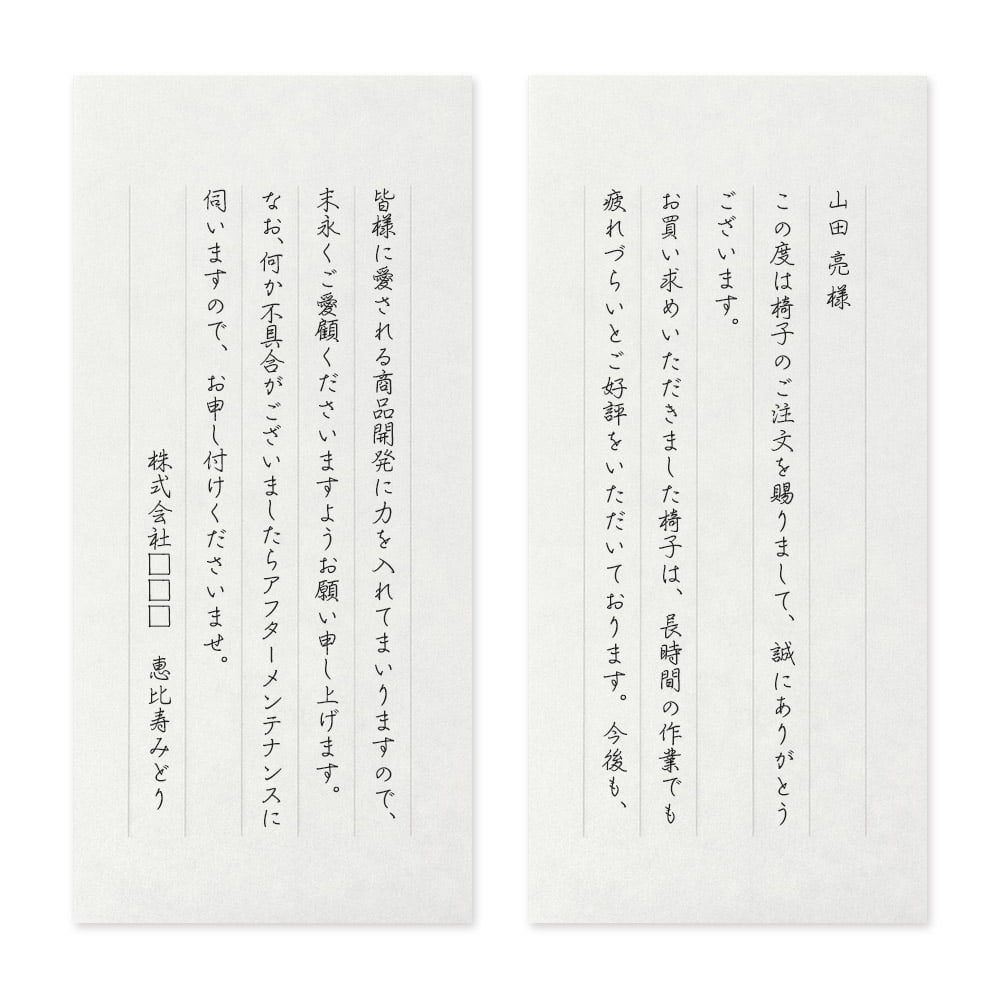 山田 亮様
この度は椅子のご注文を賜りまして、誠にありがとう
ございます。
お買い求めいただきました椅子は、長時間の作業でも
疲れづらいとご好評をいただいております。今後も、
皆様に愛される商品開発に力を入れてまいりますので、
末永くご愛顧くださいますようお願い申し上げます。
なお、何か不具合がございましたらアフターメンテナンスに
伺いますので、お申し付けくださいませ。
株式会社□□□ 恵比寿みどり